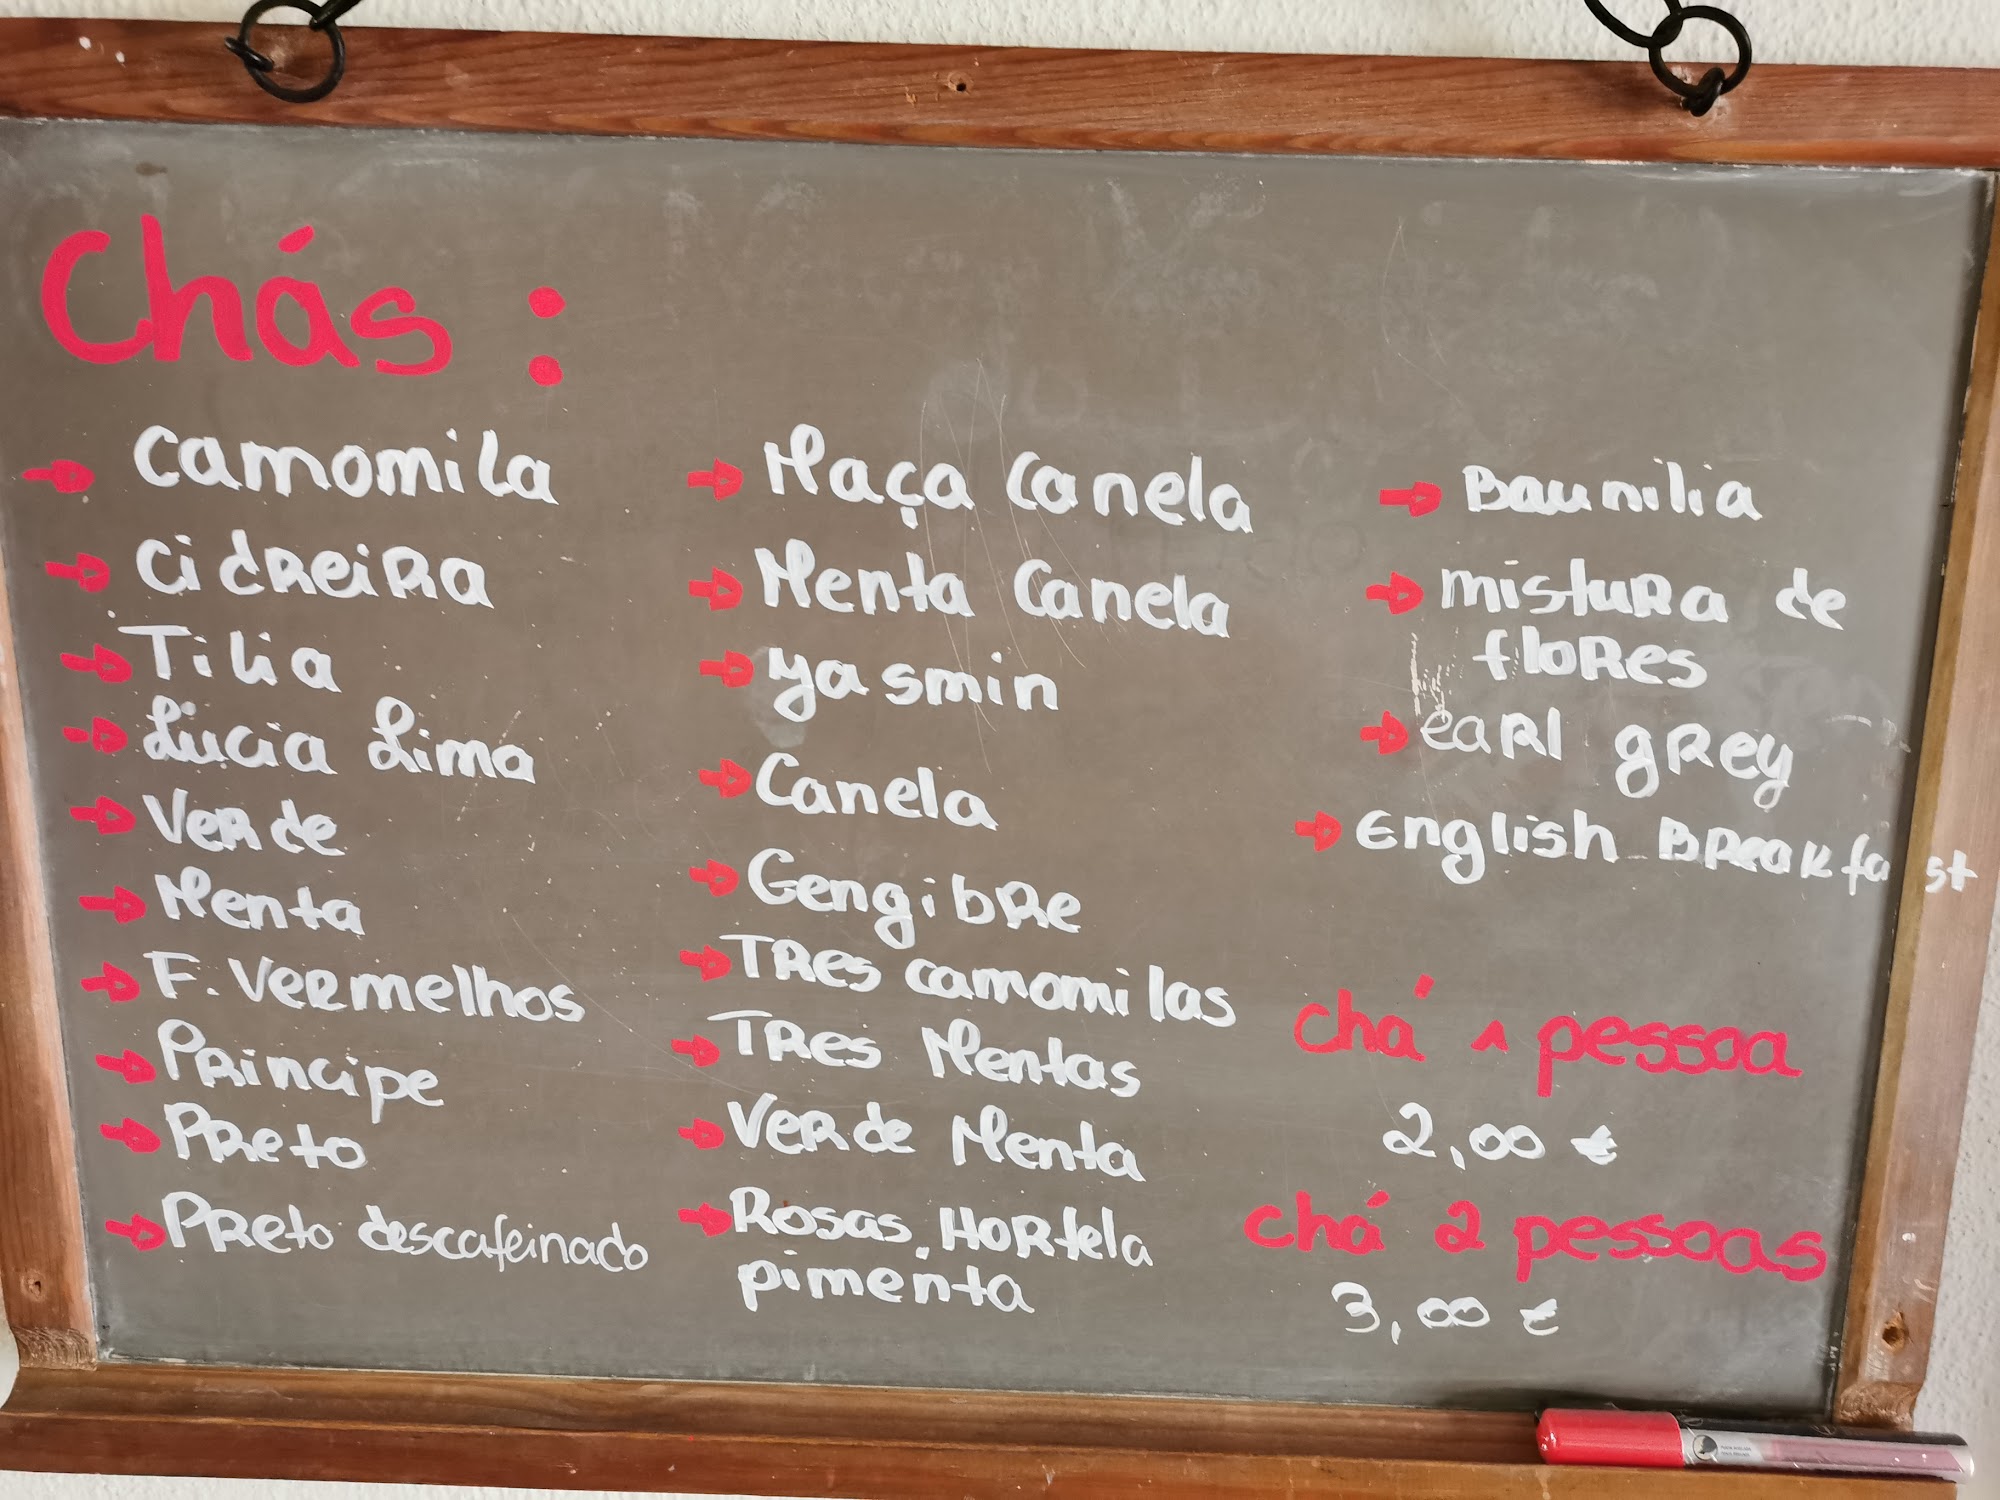 Chás :
Camomila
Cidreira
Tilia
Lúcia Lima
Verde
Menta
F. Vermelhos
Principe
Preto
Preto descafeinado
Maça Canela
Menta Canela
yasmin
Canela
Gengibre
Tres camomilas
Tres Mentas
Verde Menta
Rosas, Hortela
pimenta
Baunilia
mistura de
flores
earl grey
English Breakfast
chá 1 pessoa
2,00 €
chá 2 pessoas
3,00 €